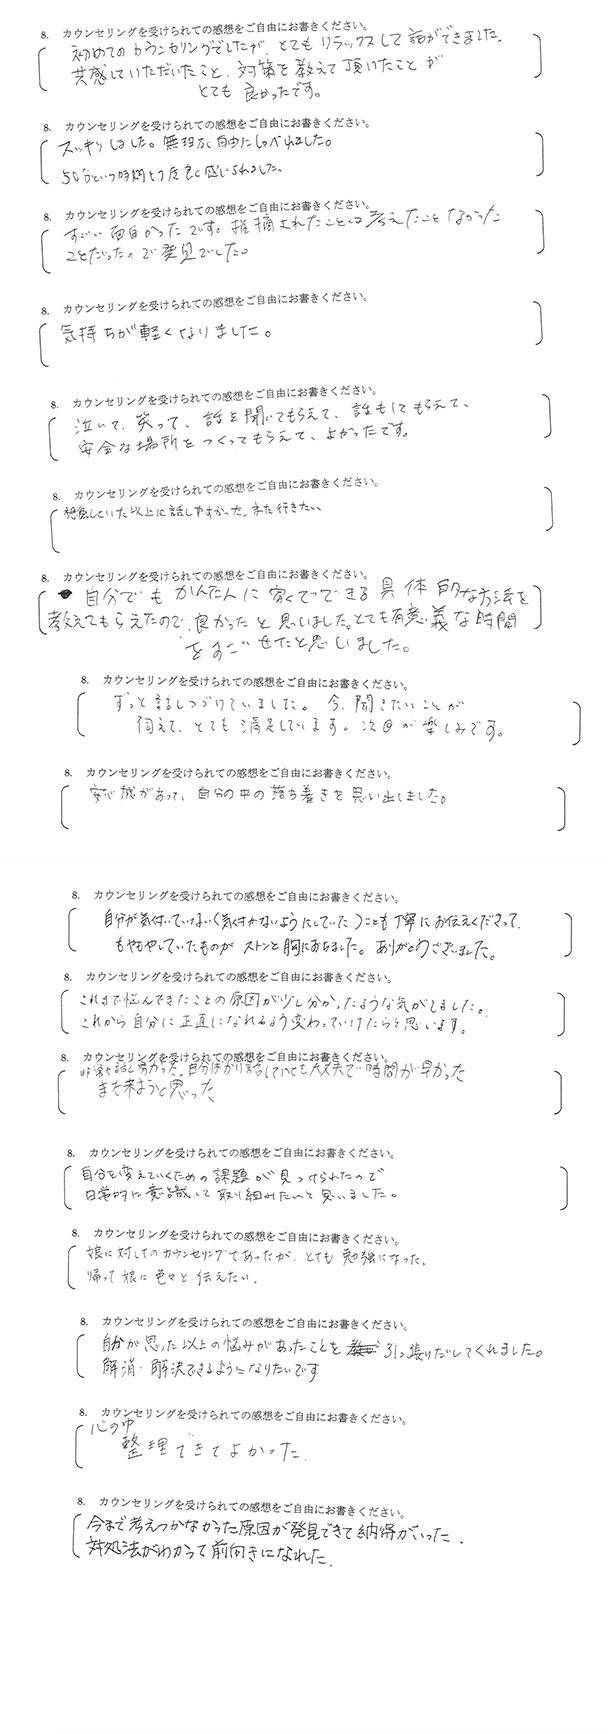 8. カウンセリングを受けられての感想をご自由にお書きください。
初めてのカウンセリングでしたが、とてもリラックスして話ができました。
共感していただいたこと、対策を教えて頂けたことが
とても良かったです。
8. カウンセリングを受けられての感想をご自由にお書きください。
スッキリしました。無理なく自由にしゃべれました。
50分という時間も丁度良く感じられました。
8. カウンセリングを受けられての感想をご自由にお書きください。
すごい面白かったです。指摘されたことは考えたことなかった
ことだったので発見でした。
8. カウンセリングを受けられての感想をご自由にお書きください。
気持ちが軽くなりました。
8. カウンセリングを受けられての感想をご自由にお書きください。
泣いて、笑って、話を聞いてもらえて、話もしてもらえて、
安全な場所をつくってもらえて、よかったです。
8. カウンセリングを受けられての感想をご自由にお書きください。
想像していた以上に話しやすかった。また行きたい。
8. カウンセリングを受けられての感想をご自由にお書きください。
自分でもかんたんに家でできる具体的な方法を
教えてもらえたので、良かったと思いました。とても有意義な時間
をすごせたと思いました。
8. カウンセリングを受けられての感想をご自由にお書きください。
ずっと話しつづけていました。今、聞きたいことが
伺えて、とても満足しています。次回が楽しみです。
8. カウンセリングを受けられての感想をご自由にお書きください。
安心感があって、自分の中の落ち着きを思い出しました。
8. カウンセリングを受けられての感想をご自由にお書きください。
自分が気付いていない(気付かないようにしていた)ことも丁寧にお伝えくださって、
もやもやしていたものがストンと胸におちました。ありがとうございました。
8. カウンセリングを受けられての感想をご自由にお書きください。
これまで悩んできたことの原因が少し分かったような気がしました。
これから自分に正直になれるよう変わっていけたらと思います。
8. カウンセリングを受けられての感想をご自由にお書きください。
非常に話し易かった。自分ばかり話していても大丈夫で時間が早かった
また来ようと思った
8. カウンセリングを受けられての感想をご自由にお書きください。
自分を変えていくための課題が見つけられたので
日常的に意識して取り組みたいと思いました。
8. カウンセリングを受けられての感想をご自由にお書きください。
娘に対してのカウンセリングであったが、とても勉強になった。
帰って娘に色々と伝えたい。
8. カウンセリングを受けられての感想をご自由にお書きください。
自分が思った以上の悩みがあったことを引っ張りだしてくれました。
解消・解決できるようになりたいです
8. カウンセリングを受けられての感想をご自由にお書きください。
心の中
整理できてよかった。
8. カウンセリングを受けられての感想をご自由にお書きください。
今まで考えつかなかった原因が発見できて納得がいった.
対処法がわかって前向きになれた.